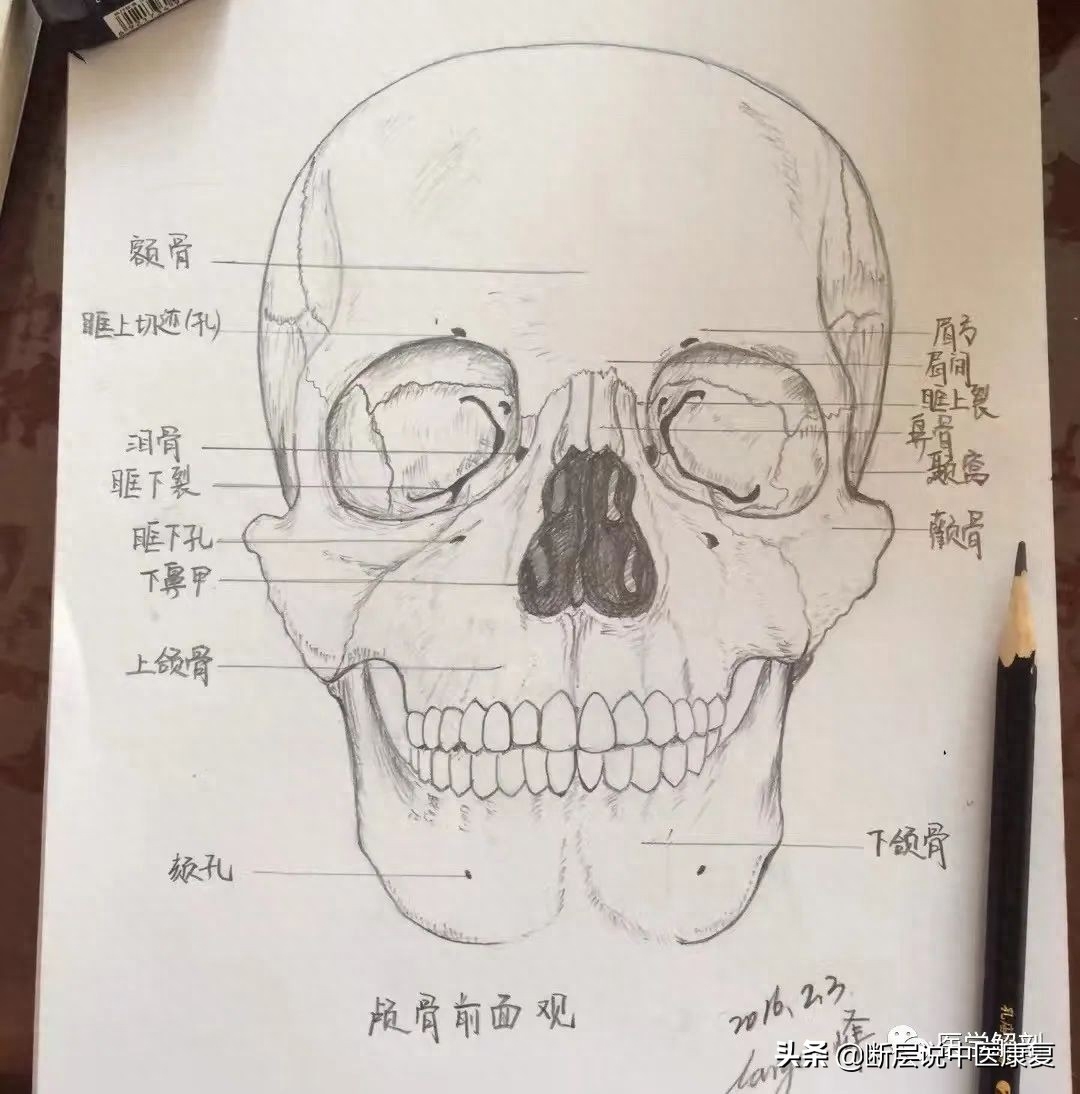 额骨
眶上切迹(孔)
泪骨
眶下裂
眶下孔
下鼻甲
上颌骨
颏孔
眉弓
眉间
眶上裂
鼻骨
颞窝
颧骨
下颌骨
颅骨前面观
2016.2.3
医学解剖
头条 @断层说中医康复